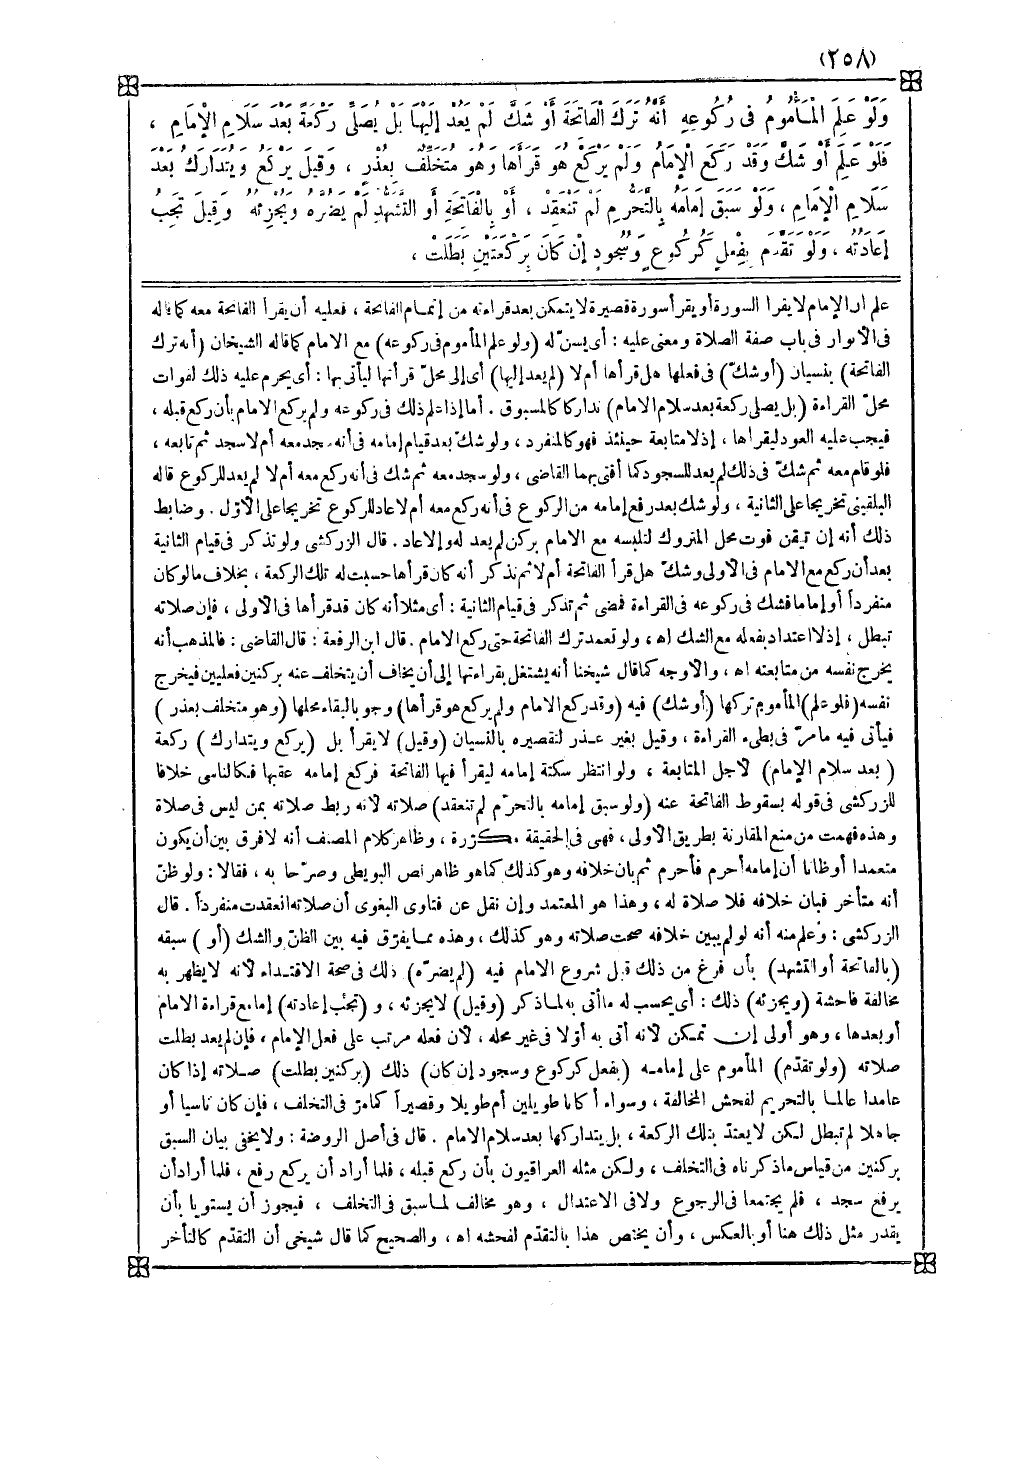 (٢٥٨)
وَلَوْ عَلِمَ الْمَأْمُومُ فى رُكُوعِهِ أَنَّهُ تَرَكَ الْفَاتِحَةَ أَوْ شَكَّ لَمْ يَعُدْ إِلَيْهَا بَلْ يُصَلِّى رَكْعَةً بَعْدَ سَلَامِ الْإِمَامِ ،
فَلَوْ عَلِمَ أَوْ شَكَّ وَقَدْ رَكَعَ الْإِمَامُ وَلَمْ يَرْكَعْ هُوَ قَرَأَهَا وَهُوَ مُتَخَلِّفٌ بِعُذْرٍ ، وَقِيلَ يَرْكَعُ وَيَتَدَارَكُ بَعْدَ
سَلَامِ الْإِمَامِ ، وَلَوْ سَبَقَ إِمَامَهُ بِالتَّحَرُّمِ لَمْ تَنْعَقِدْ ، أَوْ بِالْفَاتِحَةِ أَوِ التَّشَهُّدِ لَمْ يَضُرَّهُ وَيُجْزِئُهُ وَقِيلَ تَجِبُ
إِعَادَتُهُ ، وَلَوْ تَقَدَّمَ بِفِعْلٍ كَرُكُوعٍ وَسُجُودٍ إِنْ كَانَ بِرُكْعَتَيْنِ بَطَلَتْ ،
علم أن الإمام لا يقرأ السورة أو يقرأ سورة قصيرة لا يتمكن بعد قراءته من إتمام الفاتحة ، فعليه أن يقرأ الفاتحة معه كما قاله
فى الأنوار فى باب صفة الصلاة ومعنى عليه : أى يسنّ له (ولو علم المأموم فى ركوعه) مع الامام كما قاله الشيخان (أنه ترك
الفاتحة) بنسيان (أو شكّ) فى فعلها هل قرأها أم لا (لم يعد إليها) أى إلى محلّ قرأتها ليأتى بها : أى يحرم عليه ذلك لفوات
محلّ القراءة (بل يصلى ركعة بعد سلام الامام) تداركا كالمسبوق . أما إذا علم ذلك فى ركوعه ولم يركع الامام بأن ركع قبله ،
فيجب عليه العود ليقرأها ، إذ لا متابعة حينئذ فهو كالمنفرد ، ولو شكّ بعد قيام إمامه فى أنه سجد معه أم لا سجد ثم تابعه ،
فلو قام معه ثم شكّ فى ذلك لم يعد للسجود كما أفتى بهما القاضى ، ولو سجد معه ثم شك فى أنه ركع معه أم لا لم يعد للركوع قاله
البلقينى تخريجا على الثانية ، ولو شك بعد رفع إمامه من الركوع فى أنه ركع معه أم لا عاد للركوع تخريجا على الأوّل . وضابط
ذلك أنه إن تيقن فوت محل المتروك لتلبسه مع الامام بركن لم يعد له وإلا عاد . قال الزركشى ولو تذكر فى قيام الثانية
بعد أن ركع مع الامام فى الأولى وشكّ هل قرأ الفاتحة أم لا ثم تذكر أنه كان قرأها حسبت له تلك الركعة ، بخلاف ما لو كان
منفردا أو إماما فشك فى ركوعه فى القراءة فمضى ثم تذكر فى قيام الثانية : أى مثلا أنه كان قد قرأها فى الأولى ، فإن صلاته
تبطل ، إذ لا اعتداد بفعله مع الشك اه ، ولو تعمد ترك الفاتحة حتى ركع الامام . قال ابن الرفعة : قال القاضى : فالمذهب أنه
يخرج نفسه من متابعته اه ، والأوجه كما قال شيخنا أنه يشتغل بقراءتها إلى أن يخاف أن يتخلف عنه بركنين فعليين فيخرج
نفسه (فلو علم) المأموم تركها (أو شك) فيه (وقد ركع الامام ولم يركع هو قرأها) وجوبا لبقاء محلها (وهو متخلف بعذر)
فيأتى فيه ما مرّ فى بطىء القراءة ، وقيل بغير عذر لتقصيره بالنسيان (وقيل) لا يقرأ بل (يركع ويتدارك) ركعة
(بعد سلام الإمام) لأجل المتابعة ، ولو انتظر سكتة إمامه ليقرأ فيها الفاتحة فركع إمامه عقبها فكالناسى خلافا
للزركشى فى قوله بسقوط الفاتحة عنه (ولو سبق إمامه بالتحرّم لم تنعقد) صلاته لأنه ربط صلاته بمن ليس فى صلاة
وهذه فهمت من منع المقارنة بطريق الأولى ، فهى فى الحقيقة مكررة ، وظاهر كلام المصنف أنه لا فرق بين أن يكون
متعمدا أو ظانا أن إمامه أحرم فأحرم ثم بان خلافه وهو كذلك كما هو ظاهر نص البويطى وصرّحا به ، فقالا : ولو ظنّ
أنه متأخر فبان خلافه فلا صلاة له ، وهذا هو المعتمد وإن نقل عن فتاوى البغوى أن صلاته انعقدت منفردا . قال
الزركشى : وعلم منه أنه لو لم يبين خلافه صحت صلاته وهو كذلك ، وهذه مما يفرّق فيه بين الظنّ والشك (أو) سبقه
(بالفاتحة أو التشهد) بأن فرغ من ذلك قبل شروع الامام فيه (لم يضرّه) ذلك فى صحة الاقتداء لأنه لا يظهر به
مخالفة فاحشة (ويجزئه) ذلك : أى يحسب له ما أتى به لما ذكر (وقيل) لا يجزئه ، و (تجب إعادته) إما مع قراءة الامام
أو بعدها ، وهو أولى إن تمكن لأنه أتى به أوّلا فى غير محله ، لأن فعله مرتب على فعل الإمام ، فإن لم يعد بطلت
صلاته (ولو تقدّم) المأموم على إمامه (بفعل كركوع وسجود إن كان) ذلك (بركنين بطلت) صلاته إذا كان
عامدا عالما بالتحريم لفحش المخالفة ، وسواء أكانا طويلين أم طويلا وقصيرا كما مرّ فى التخلف ، فإن كان ناسيا أو
جاهلا لم تبطل لكن لا يعتدّ بتلك الركعة ، بل يتداركها بعد سلام الامام . قال فى أصل الروضة : ولا يخفى بيان السبق
بركنين من قياس ما ذكرناه فى التخلف ، ولكن مثله العراقيون بأن ركع قبله ، فلما أراد أن يركع رفع ، فلما أراد أن
يرفع سجد ، فلم يجتمعا فى الرجوع ولا فى الاعتدال ، وهو مخالف لما سبق فى التخلف ، فيجوز أن يستويا بأن
يقدر مثل ذلك هنا أو بالعكس ، وأن يختص هذا بالتقدّم لفحشه اه ، والصحيح كما قال شيخى أن التقدّم كالتأخر